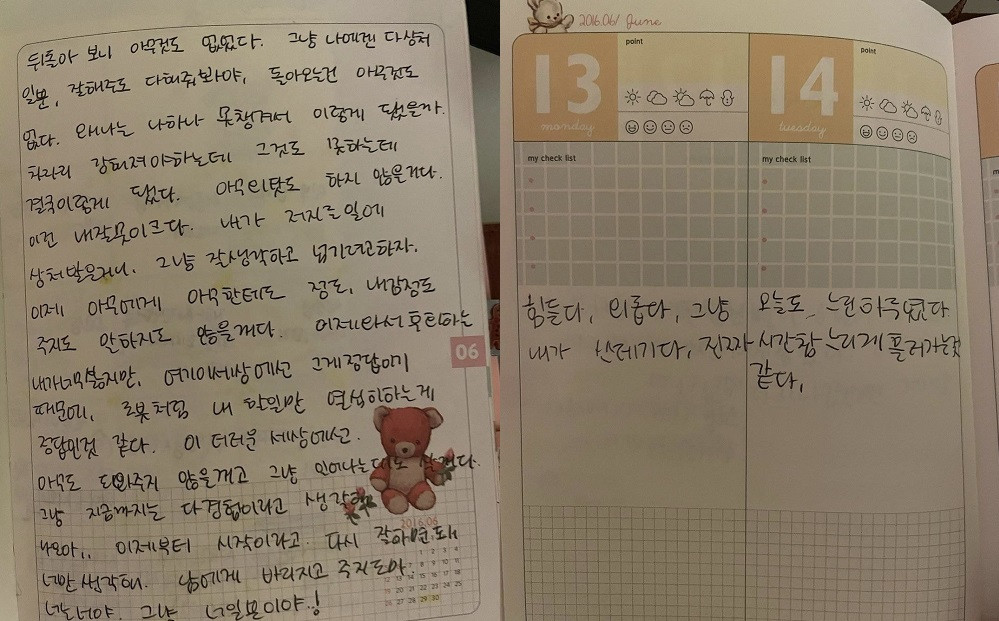 뒤돌아 보니 아무것도 없었다. 그냥 나에겐 다상처
일뿐, 잘해주도 다해줘봐야, 돌아오는건 아무것도
없다. 왜나는 나하나 못챙겨서 이렇게 됐을까.
차라리 강해져야하는데 그것도 못하는데
결국이렇게 됐다. 아무의탓도 하지 않을거다.
이건 내잘못이크다. 내가 저지른일에
상처받은거니. 그냥 잘생각하고 넘기려고하자.
이제 아무에게 아무한테도 정도, 내감정도
주지도 안하지도 않을꺼다. 이제와서 후회하는
내가 웃기지만, 여기이세상에선 그게정답이기
때문에, 로봇처럼 내 할일만 열심히하는게
정답인것 같다. 이 더러운 세상에선.
아무도 도와주지 않을꺼고 그냥 일어나는대로
그냥 지금까지는 다경험이라고 생각해
나요아,, 이제부터 시작이라고. 다시 잘하면돼
너만생각해. 남에게 바라지고 주지도마.
너는너야. 그냥 너일뿐이야..!
06
2016.06
1 2 3 4
7 8 9 10 11
12 13 14 15 16 17 18
19 20 21 22 23 24 25
26 27 28 29 30
2016.06/ June
13
monday
point
my check list
힘들다, 외롭다, 그냥
내가 쓰레기다,
14
tuesday
point
my check list
오늘도 느린하루였다
진짜 시간참 느리게 흘러가는것
같다,